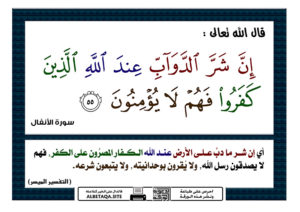 قال الله تعالى :
إِنَّ شَرَّ ٱلدَّوَآبِّ عِندَ ٱللَّهِ ٱلَّذِينَ
كَفَرُواْ فَهُمۡ لَا يُؤۡمِنُونَ ٥٥
سورة الأنفال
أي إن شر ما دبَّ على الأرض عند الله الكفار المصرّون على الكفر، فهم
لا يصدقون رسل الله، ولا يقرون بوحدانيته، ولا يتبعون شرعه.
( التفسير الميسر )
ALBETAQA.SITE